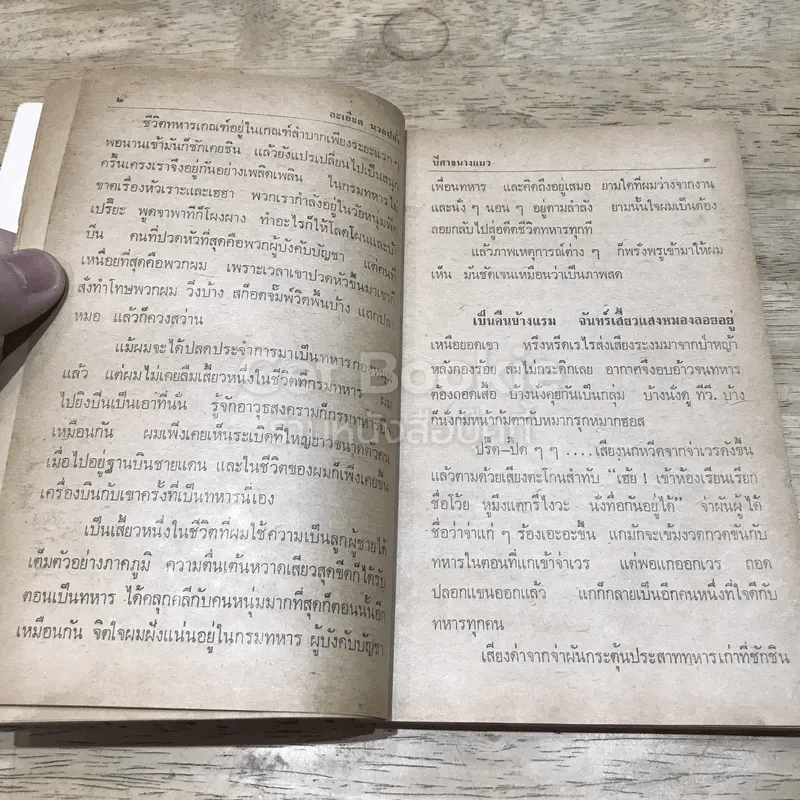 ๒ ละเอียด นวลปลั่ง
ชีวิตทหารเกณฑ์อยู่ในเกณฑ์ลำบากเพียงระยะแรก ๆ
พอนานเข้ามันก็ชักเคยชิน แล้วยังแปรเปลี่ยนไปเป็นสนุก
ครื้นเครงเราจึงอยู่กันอย่างเพลิดเพลิน ในกรมทหารไม่
ขาดเรื่องหัวเราะและเฮฮา พวกเรากำลังอยู่ในวัยหนุ่ม
เปรี๊ยะ พูดจาพาทีก็โผงผาง ทำอะไรก็ให้โลดโผนและบ้า
บิ่น คนที่ปวดหัวที่สุดคือพวกผู้บังคับบัญชา แต่คนที่
เหนื่อยที่สุดคือพวกผม เพราะเวลาเขาปวดหัวขึ้นมาเขาก็
สั่งทำโทษพวกผม วิ่งบ้าง สก็อตจั๊มพ์วิดพื้นบ้าง แถกปลา
หมอ แล้วก็ควงสว่าน
แม้ผมจะได้ปลดประจำการมาเป็นทหารกองหนุน
แล้ว แต่ผมไม่เคยลืมเสี้ยวหนึ่งในชีวิตที่กรมทหาร ผม
ไปยิงปืนเป็นเอาที่นั่น รู้จักอาวุธสงครามก็กรมทหาร
เหมือนกัน ผมเพิ่งเคยเห็นระเบิดที่ใหญ่ยาวขนาดตัวคน
เมื่อไปอยู่ฐานบินชายแดน และในชีวิตของผมก็เพิ่งเคยขึ้น
เครื่องบินกับเขาครั้งที่เป็นทหารนี่เอง
เป็นเสี้ยวหนึ่งในชีวิตที่ผมใช้ความเป็นลูกผู้ชายได้
เต็มตัวอย่างภาคภูมิ ความตื่นเต้นหวาดเสียวสุดขีดก็ได้รับ
ตอนเป็นทหาร ได้คลุกคลีกับคนหนุ่มมากที่สุดก็ตอนนั้นอีก
เหมือนกัน จิตใจผมฝังแน่นอยู่ในกรมทหาร ผู้บังคับบัญชา
ปีศาจนางแมว ๓
เพื่อนทหาร และคิดถึงอยู่เสมอ ยามใดที่ผมว่างจากงาน
และนั่ง ๆ นอน ๆ อยู่ตามลำลัง ยามนั้นใจผมเป็นต้อง
ลอยกลับไปสู่อดีตชีวิตทหารทุกที
แล้วภาพเหตุการณ์ต่าง ๆ ก็พรั่งพรูเข้ามาให้ผม
เห็น มันชัดเจนเหมือนว่าเป็นภาพสด
เป็นคืนข้างแรม จันทร์เสี้ยวแสงหมองลอยอยู่
เหนือยอดเขา หรีงหรีดเรไรส่งเสียงระงมมาจากป่าหญ้า
หลังกองร้อย ลมไม่กระดิกเลย อากาศจึงอบอ้าวจนทหาร
ต้องถอดเสื้อ บางนั่งคุยกันเป็นกลุ่ม บ้างนั่งดู ทีวี. บ้าง
ก็นั่งก้มหน้าก้มตากับหมากรุกหมากฮอส
ปรี๊ด–ปี๊ด ๆ ๆ ....เสียงนกหวีดจากจ่าเวรดังขึ้น
แล้วตามด้วยเสียงตะโกนสำทับ "เฮ้ย ! เข้าห้องเรียนเรียก
ชื่อโว้ย หูมึงแตกรึไงวะ นั่งทื่อกันอยู่ได้" จ่าผันผู้ได้
ชื่อว่าจ่าแก่ ๆ ร้องเอะอะขึ้น แกมักจะเข้มงวดกวดขันกับ
ทหารในตอนที่แกเข้าจ่าเวร แต่พอแกออกเวร ถอด
ปลอกแขนออกแล้ว แกก็กลายเป็นอีกคนหนึ่งที่ใจดีกับ
ทหารทุกคน
เสียงด่าจากจ่าผันกระตุ้นประสาททหารเก่าที่ชักชิน